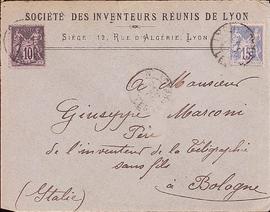 SOCIÉTÉ DES INVENTEURS RÉUNIS DE LYON
SIÈGE: 12, RUE D'ALGÉRIE, LYON
10
15
A Monsieur
Giuseppe Marconi
Père
de l'inventeur de la Télégraphie
sans fils
à Bologne
(Italie)